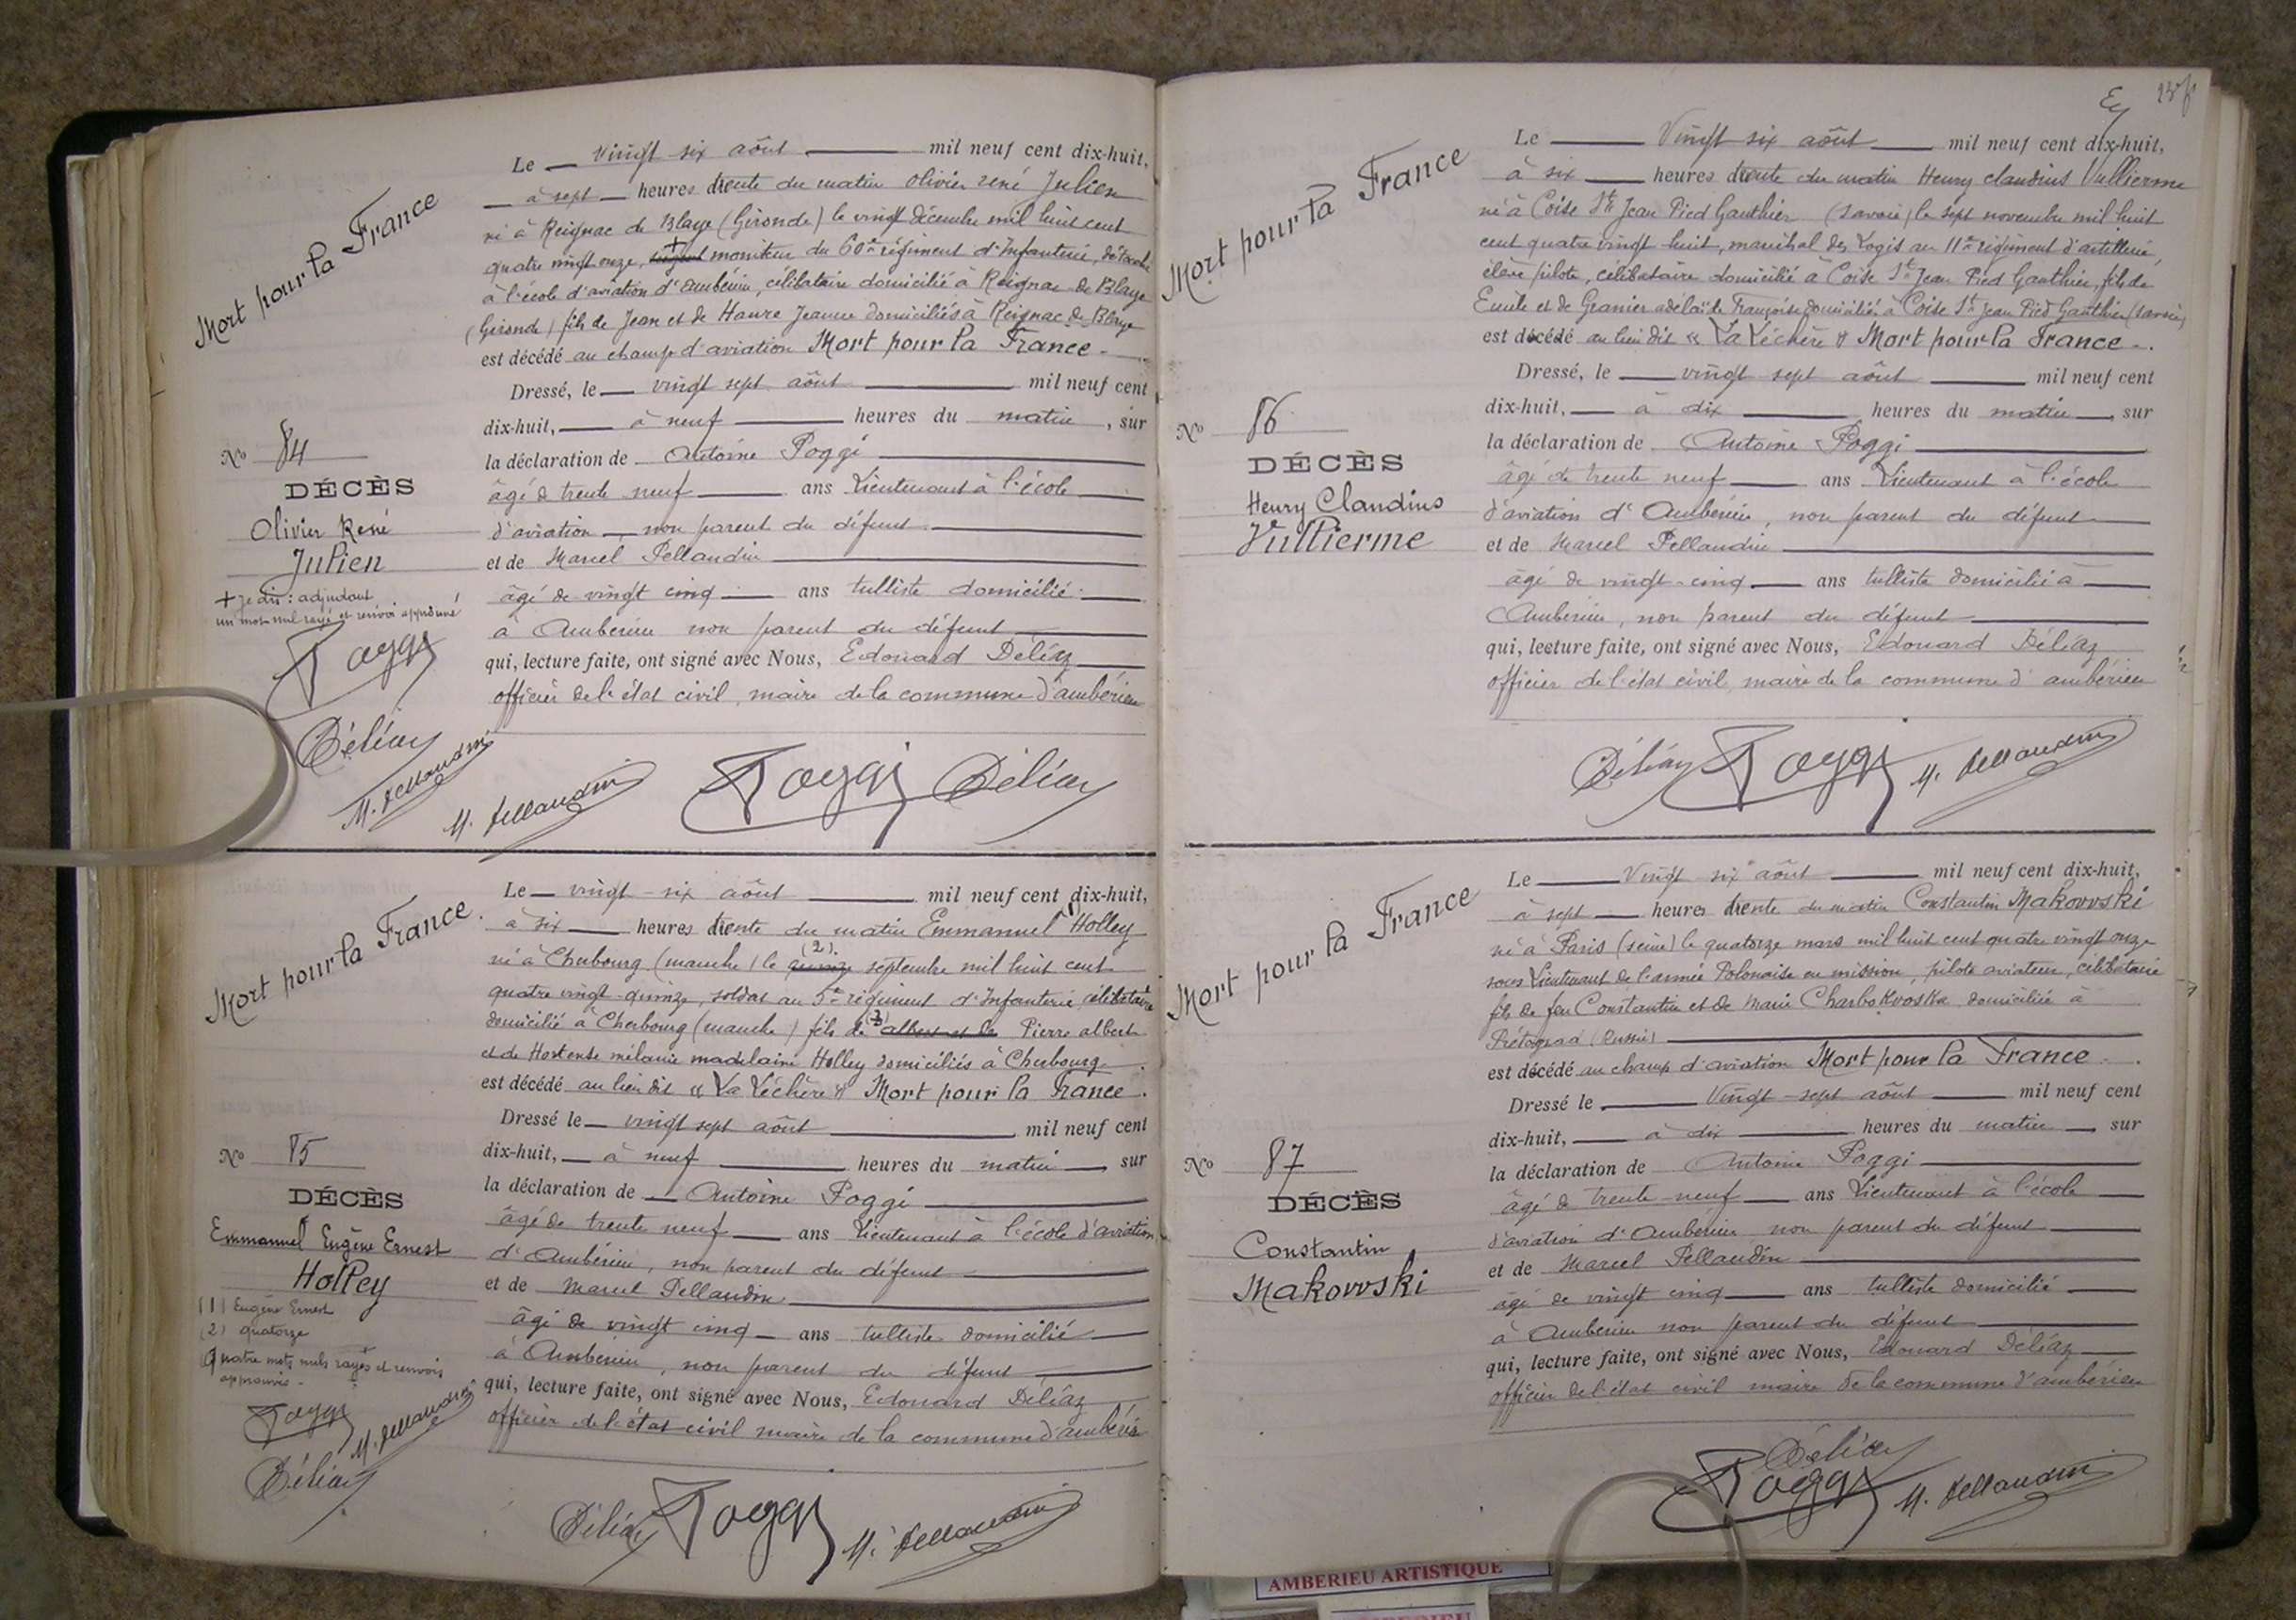 Mort pour la France
Le vingt six août mil neuf cent dix-huit,
à sept heures trente du matin Olivier rené Julien
né à Reignac de Blaye (Gironde) le vingt décembre mil huit cent
quatre vingt onze, + moniteur du 60e régiment d'Infanterie, détaché
à l'école d'aviation d'Ambérieu, célibataire domicilié à Reignac de Blaye
(Gironde) fils de Jean et de Haure Jeanne domiciliés à Reignac de Blaye
est décédé au champ d'aviation Mort pour la France.
Dressé, le vingt sept août mil neuf cent
dix-huit, à neuf heures du matin, sur
la déclaration de Antoine Poggi
âgé de trente neuf ans Lieutenant à l'école
d'aviation non parent du défunt
et de Marcel Pellaudin
âgé de vingt cinq ans tulliste domicilié
à Ambérieu non parent du défunt
qui, lecture faite, ont signé avec Nous, Edouard Déliaz
officier de l'état civil, maire de la commune d'ambérieu
No 84
DÉCÈS
Olivier René
Julien
+ je dis : adjudant
un mot nul rayé et renvoi approuvé
Poggi
Déliaz
M. Pellaudin
M. Pellaudin Poggi Déliaz
Mort pour la France.
Le vingt-six août mil neuf cent dix-huit,
à six heures trente du matin Emmanuel Holley
(2)
né à Cherbourg (manche) le quinze septembre mil huit cent
quatre vingt-quinze, soldat au 5e régiment d'Infanterie, célibataire
domicilié à Cherbourg (manche) fils de albert et de Pierre albert
et de Hortense mélanie madelaine Holley domiciliés à Cherbourg
est décédé au lieu dit « La Léchère » Mort pour la France.
Dressé le vingt sept août mil neuf cent
dix-huit, à neuf heures du matin, sur
la déclaration de Antoine Poggi
âgé de trente neuf ans Lieutenant à l'école d'aviation
d'Ambérieu, non parent du défunt
et de Marcel Pellaudin
âgé de vingt cinq ans tulliste domicilié
à Ambérieu, non parent du défunt
qui, lecture faite, ont signé avec Nous, Edouard Déliaz
officier de l'état civil maire de la commune d'ambérieu
No 85
DÉCÈS
Emmanuel Eugène Ernest
Holley
(1) Eugène Ernest
(2) quatorze
quatre mots nuls rayés et renvois
approuvés.
Poggi
M. Pellaudin
Déliaz
Déliaz Poggi M. Pellaudin
Mort pour la France
Le Vingt six août mil neuf cent dix-huit,
à six heures trente du matin Henry claudius Vullierme
né à Coise St Jean Pied Gauthier (Savoie) le sept novembre mil huit
cent quatre vingt huit, maréhal des Logis au 11e régiment d'artillerie,
élève pilote, célibataire domicilié à Coise St Jean Pied Gauthier, fils de
Emile et de Granier adelaïde Françoise domiciliés à Coise St Jean Pied Gauthier (Savoie)
est décédé au lieu dit « La Léchère » Mort pour la France.
Dressé, le vingt sept août mil neuf cent
dix-huit, à dix heures du matin, sur
la déclaration de Antoine Poggi
âgé de trente neuf ans Lieutenant à l'école
d'aviation d'Ambérieu, non parent du défunt
et de Marcel Pellaudin
âgé de vingt-cinq ans tulliste domicilié à
Ambérieu, non parent du défunt
qui, lecture faite, ont signé avec Nous, Edouard Déliaz
officier de l'état civil, maire de la commune d'ambérieu
No 86
DÉCÈS
Henry Claudius
Vullierme
Déliaz Poggi M. Pellaudin
Mort pour la France
Le Vingt six août mil neuf cent dix-huit,
à sept heures trente du matin Constantin Makovvski
né à Paris (seine) le quatorze mars mil huit cent quatre vingt onze
sous Lieutenant de l'armée Polonaise en mission, pilote aviateur, célibataire
fils de feu Constantin et de Marie Charbokvoska domiciliée à
Pétograd (Russie)
est décédé au champ d'aviation Mort pour la France.
Dressé le Vingt-sept août mil neuf cent
dix-huit, à dix heures du matin, sur
la déclaration de Antoine Poggi
âgé de trente-neuf ans Lieutenant à l'école
d'aviation d'Ambérieu non parent du défunt
et de Marcel Pellaudin
âgé de vingt cinq ans tulliste domicilié
à Ambérieu non parent du défunt
qui, lecture faite, ont signé avec Nous, Edouard Déliaz
officier de l'état civil maire de la commune d'ambérieu
No 87
DÉCÈS
Constantin
Makovvski
Déliaz
Poggi M. Pellaudin
AMBERIEU ARTISTIQUE
AMBERIEU